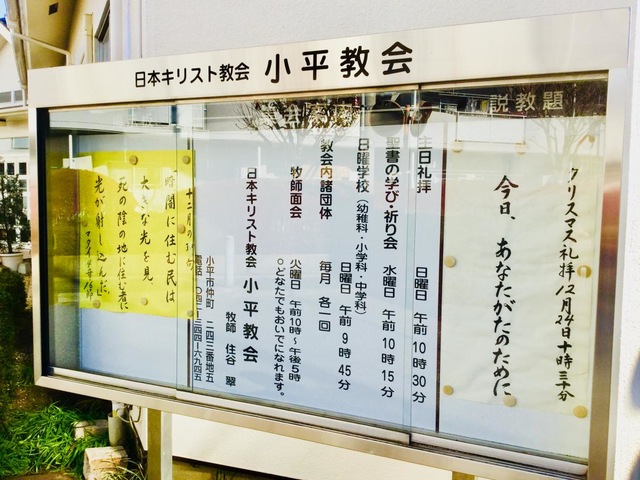 日本キリスト教会 小平教会
説教題
クリスマス礼拝 12月24日十時三十分
今日、あなたがたのために
主日礼拝 日曜日 午前10時30分
聖書の学び・祈り会 水曜日 午前10時15分
日曜学校(幼稚科・小学科・中学科)
日曜日 午前9時45分
教会内諸団体 毎月 各一回
牧師面会 火曜日 午前10時〜午後5時
○どなたでもおいでになれます。
日本キリスト教会 小平教会
牧師 住谷 翠
小平市仲町二四三番地五
電話 〇四二ー三四四ー六九四五
十二月の
暗闇に住む民は
大きな光を見
死の陰の地に住む者に
光が射し込んだ。
マタイ